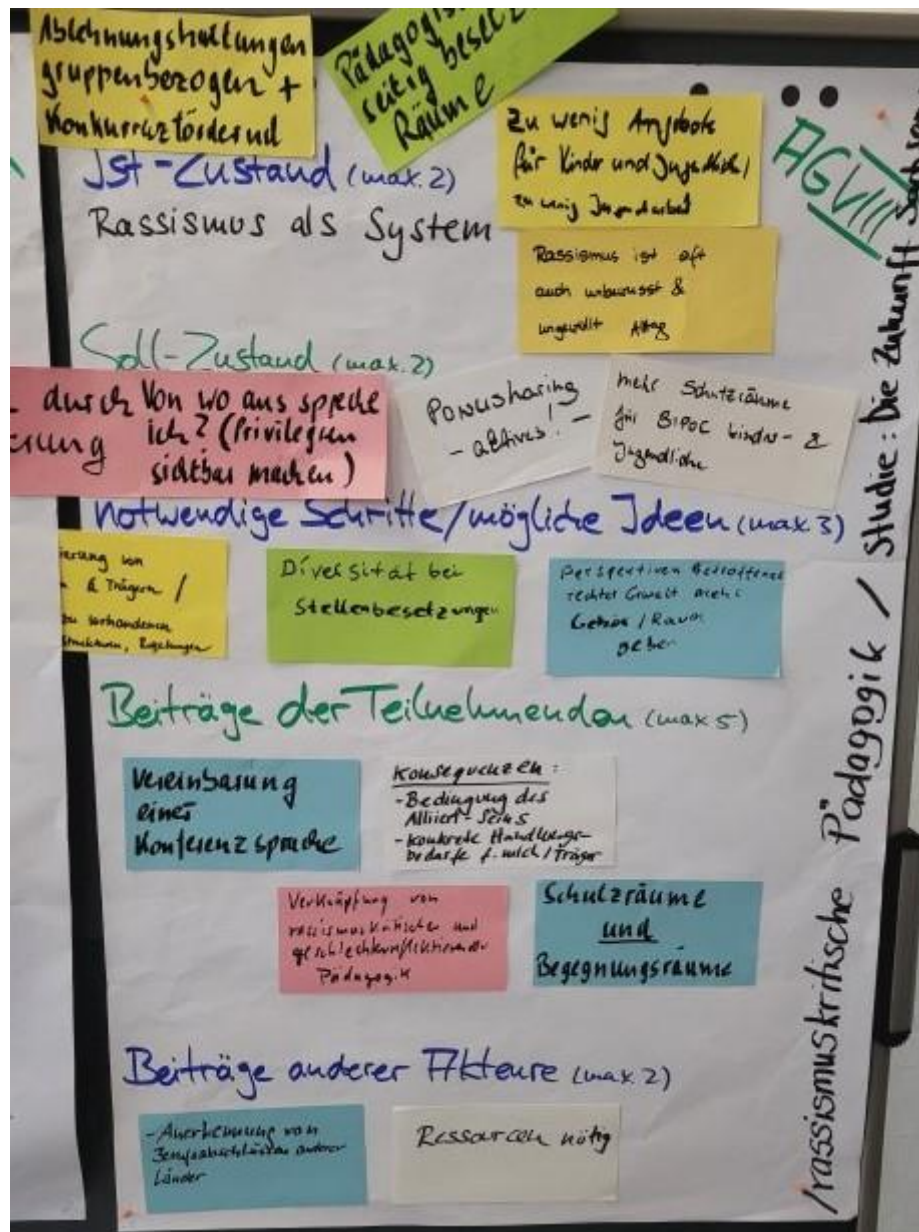 Ablehnungshaltungen
gruppenbezogen +
Konkurrenzfördernd
Pädagogis
seitig beset
Räume
zu wenig Angebote
für Kinder und Jugendliche/
zu wenig Jugendarbeit
AG VIII
Ist-Zustand (max. 2)
Rassismus als System
Rassismus ist oft
auch unbewusst &
ungewollt Alltag
Soll-Zustand (max. 2)
durch
erung
Von wo aus spreche
ich? (Privilegien
sichtbar machen)
Powersharing
- aktives! -
mehr Schutzräume
für BIPoC Kinder- &
Jugendliche
notwendige Schritte/mögliche Ideen (max. 3)
ierung von
& Trägern /
zu vorhandenen
Strukturen,
Diversität bei
Stellenbesetzungen
Perspektiven Betroffener
rechter Gewalt mehr
Gehör / Raum
geben
Beiträge der Teilnehmenden (max 5)
Vereinbarung
einer
Konferenzsprache
Konsequenzen:
- Bedingung des
Alliiert-Seins
- konkrete Handlungs-
bedarfe f. mich / Träger
Verknüpfung von
rassismuskritischer und
geschlechterreflektierender
Pädagogik
Schutzräume
und
Begegnungsräume
Beiträge anderer Akteure (max. 2)
- Anerkennung von
Berufsabschlüssen anderer
Länder
Ressourcen nötig
/rassismuskritische Pädagogik / Studie: Die Zukunft